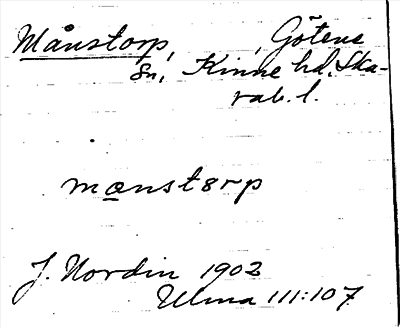 Månstorp, , Götene
sn, Kinne hd, Ska-
rab. l.
mœnstorp
J. Nordin 1902
Ulma 111:107